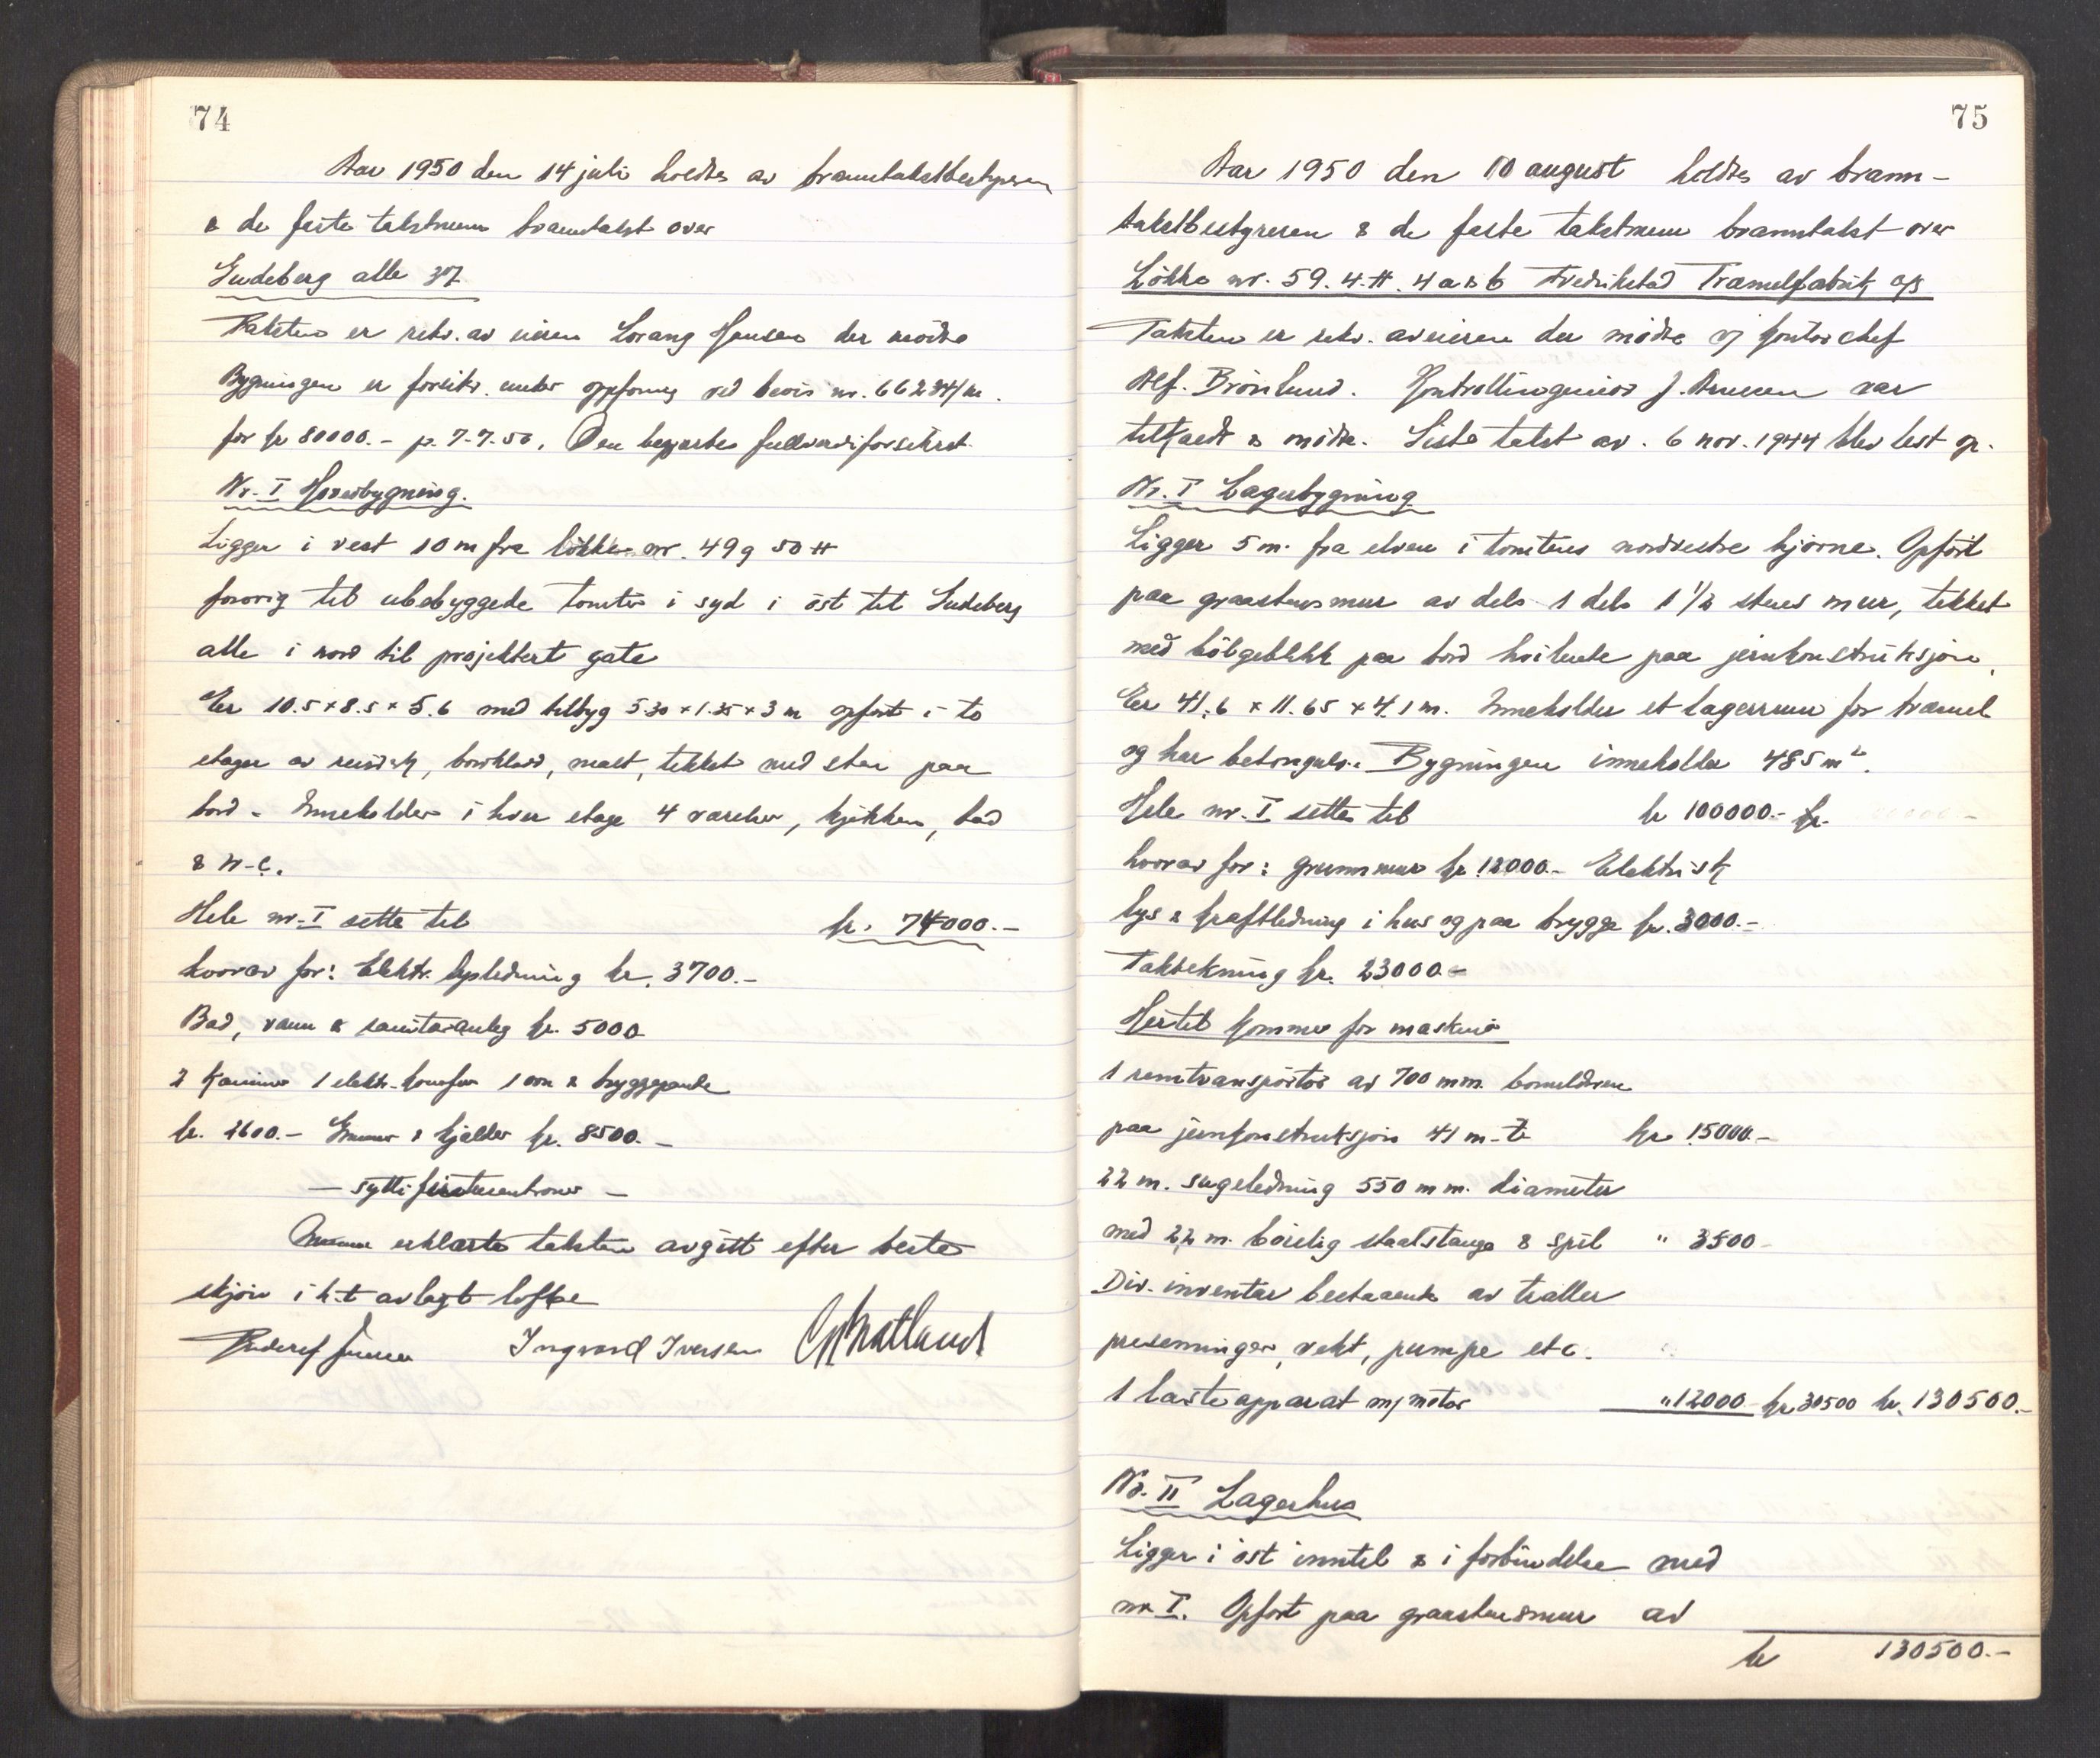 74
Aar 1950 den 14 juli holdtes av branntakstbestyreren
& de faste takstmenn branntakst over
Gudeberg alle 37
Taksten er rekv. av eieren Lorang Hansen der mödte
Bygningen er forsikr. under opföring ved bevis nr. 66234/m.
for kr 80000.- p. 7-7.50. Den begjærtes fullverdiforsikret.
Nr. I Hovedbygning.
Ligger i vest 10 m fra lökke nr. 49 g 50 H
forövrig til ubebyggede tomter i syd i öst til Gudeberg
alle i nord til projektert gate
Er 10.5 x 8.5 x 5.6 med tilbyg 5.30 x 1.35 x 3 m opfört i to
etager av reisverk, bordkledd, malt, tekket med sten paa
bord. Inneholder i hver etage 4 værelser, kjökken, bad
& W.C.
Hele nr. I settes til kr. 74000.-
hvorav for: Elektr. lysledning kr. 3700.-
Bad, vann & sanitæranleg kr. 5000
2 Kaminer 1 elektr. komfyr 1 ovn & bryggepanne
kr. 2600.- Grunnmur & kjelder kr. 8500.-
— syttifiretusenkroner —
Mennene erklærte taksten avgitt efter beste
skjönn i h.t avlagt löfte
Ingvard Iversen
75
Aar 1950 den 10 august holdtes av brann-
takstbestyreren & de faste takstmenn branntakst over
Lökke nr. 59. 4. H. 4 a & b Fredrikstad Tranmelfabrik A/S
Taksten er rekv. av eieren der mödte v/ kontorchef
Alf. Brönlund. Kontrollingeniör J. Arnesen var
tilkaldt & mödte. Siste takst av 6 nov. 1944 blev lest op.
Nr. I Lagerbygning
Ligger 5 m. fra elven i tomtens nordvestre hjörne. Opfört
paa graastensmur av dels 1 dels 1 1/2 stens mur, tekket
med bölgeblikk paa bord hvilende paa jernkonstruksjon.
Er 41.6 x 11.65 x 4.1 m. Inneholder et lagerrum for tranmel
og har betongulv. Bygningen inneholder 485 m².
Hele nr. I settes til kr 100000.- kr.
hvorav for: grunnmur kr. 12000.- Elektrisk
lys & kraftledning i hus og paa brygge kr. 3000.-
Taktekning kr. 23000.-
Hertil kommer for maskiner
1 remtransportör av 700 mm. bomuldsrem
paa jernkonstruksjon 41 m-tr kr 15000.-
22 m. sugeledning 550 mm. diameter
med 22 m. böielig staalslange & spil " 3500
Div. inventar bestaaende av traller
presenninger, vekt, pumpe etc.
1 lasteapparat m/motor " 12000 kr 30500 kr. 130500.-
Nr. II Lagerhus
Ligger i öst inntil & i forbindelse med
nr I. Opfört paa graastensmur av
kr 130500.-